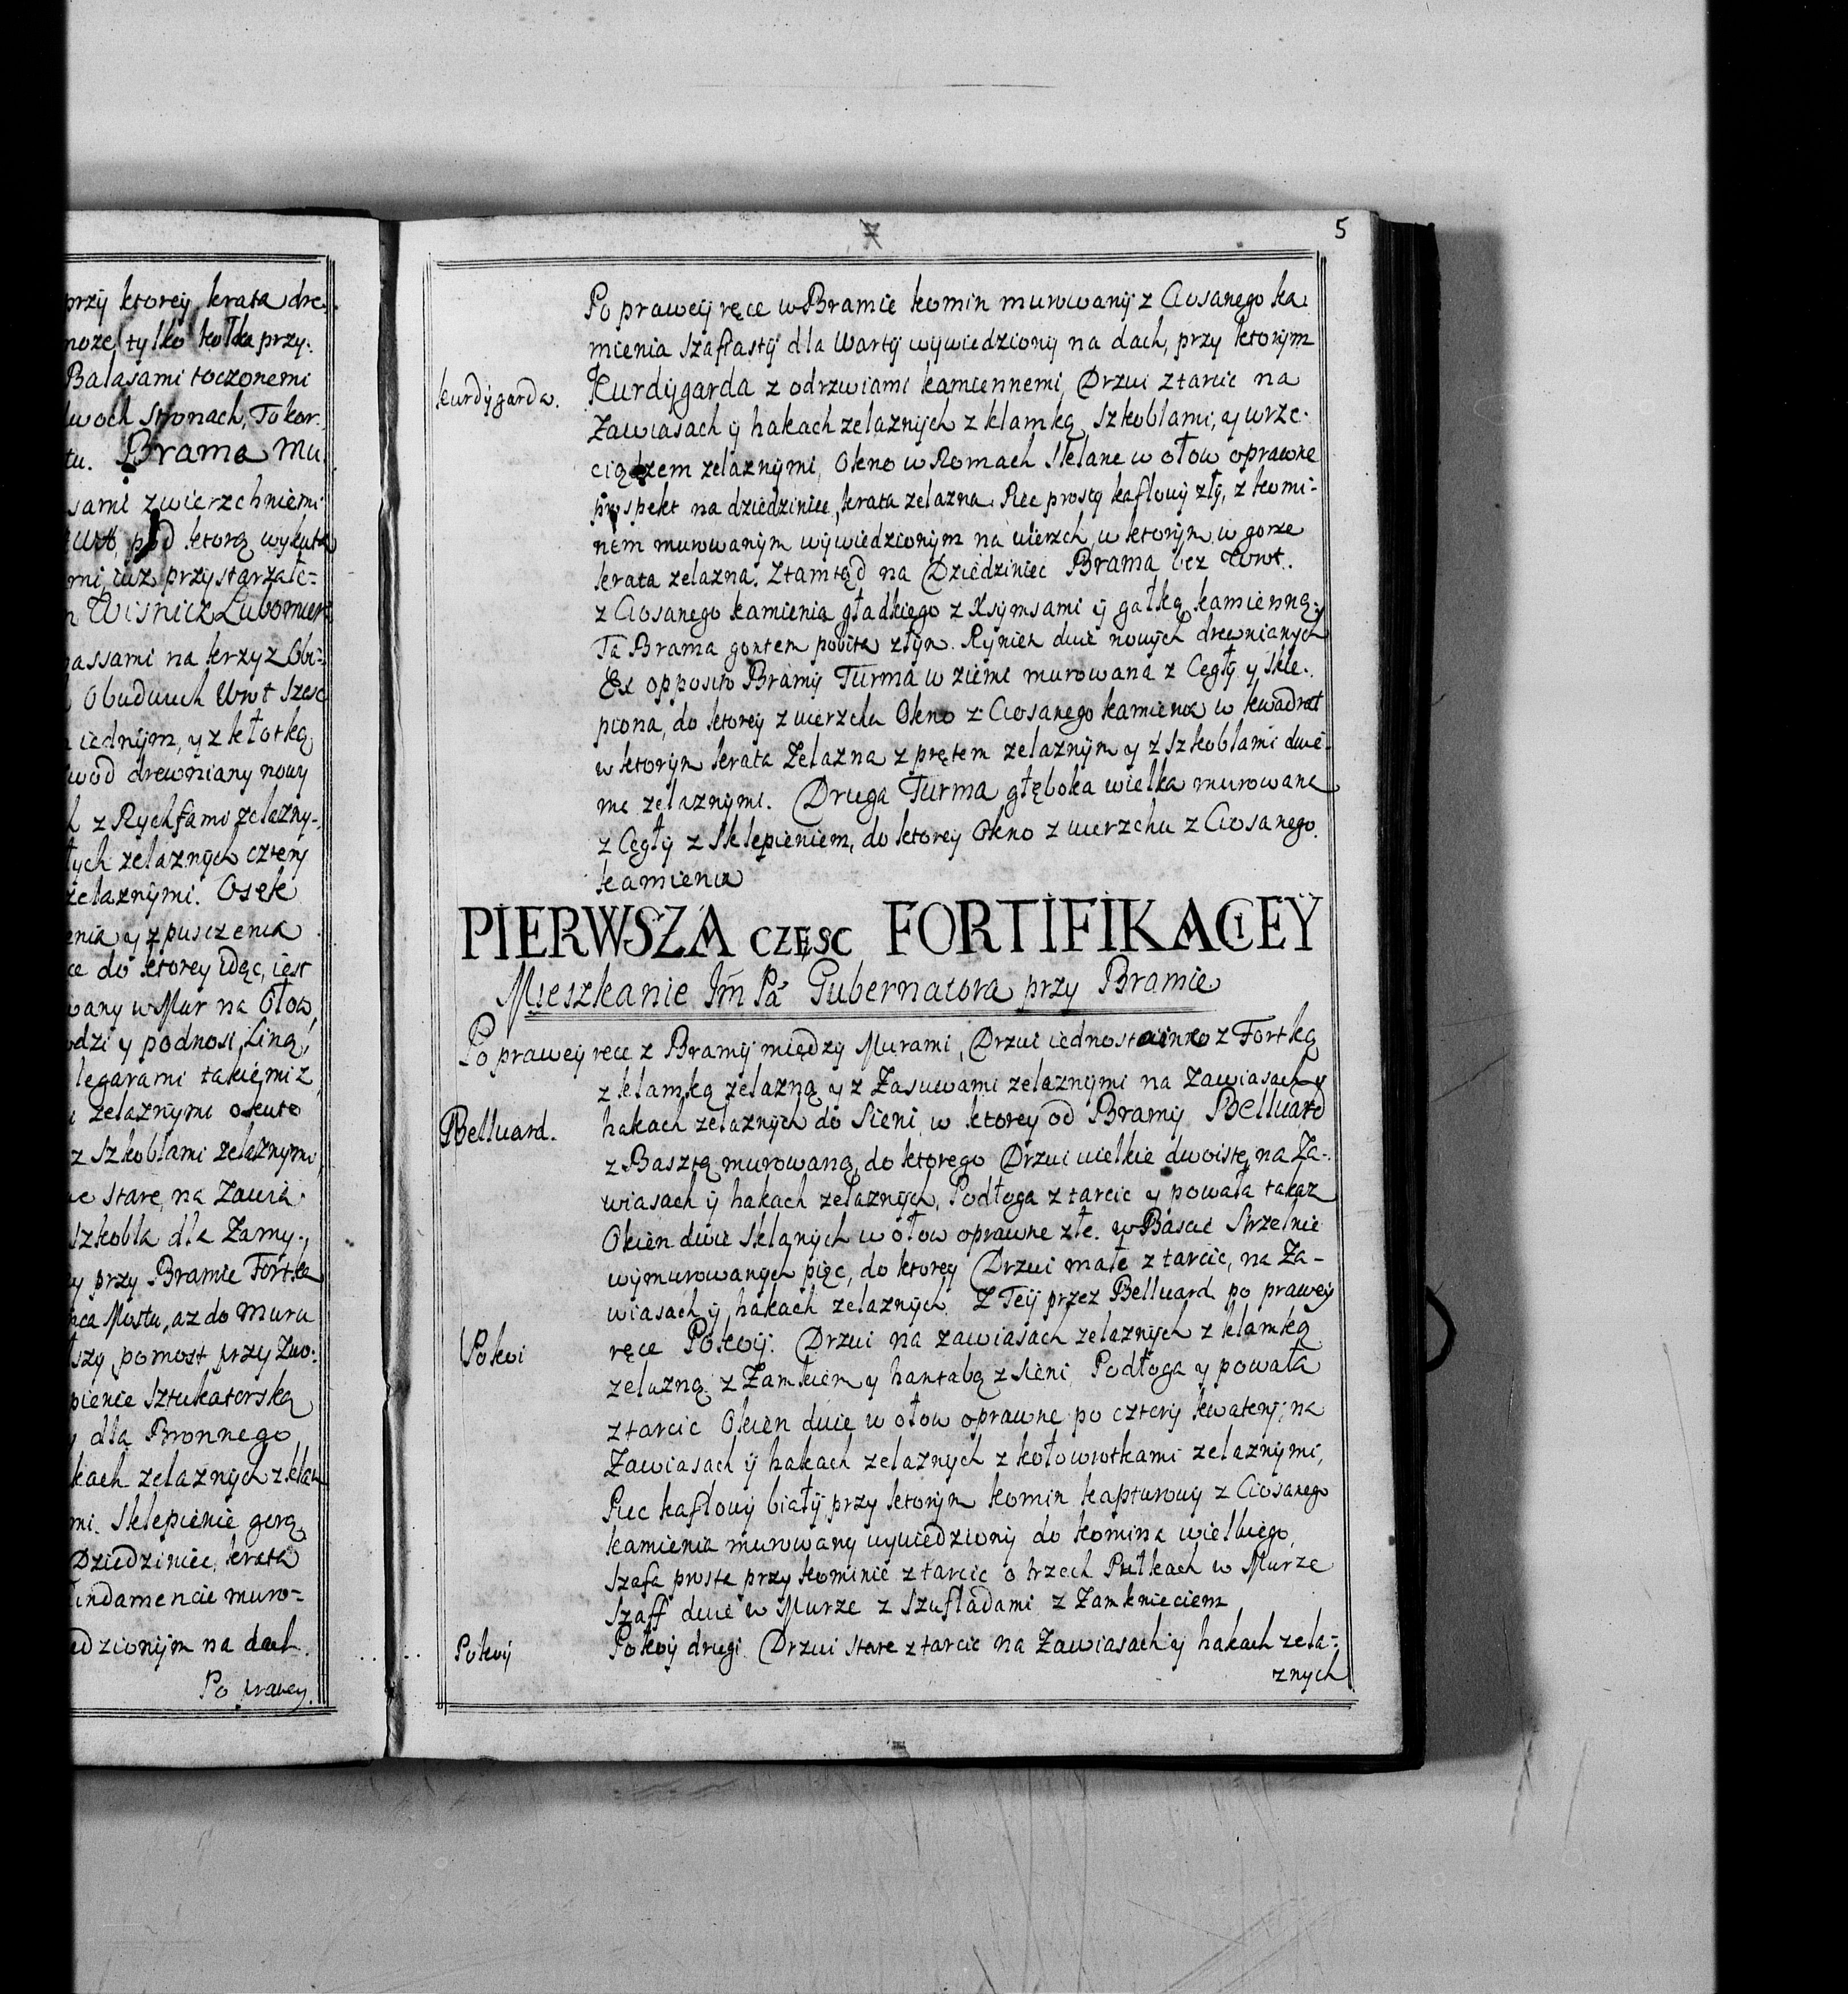 przy ktorey krata dre.
moze, tylko kolka przy.
Balasami toczonemi
dwoch stronach, To kor.
tu. Brama Mu
sami zwierzchniemi
pod ktorą wykuta
mi, iuz przystarzałe-
Wisnicz Lubomier
passami na krzyz Obi-
Obuduuch Wrot szesc
iednym, y z kłotką
wod drewniany nowy
z Rychfami zelazny-
tych zelaznych cztery
zelaznymi. Osęk
enia y zpuszczenia
ce do ktorey idąc, iest
wany w Mur na Ołow,
odzi y podnosi, Liną,
legarami takiemi z
zelaznymi okute
z szkoblami zelaznymi
stare, na Zawia.
szkobla dla Zamy.
y przy Bramie Fortka
Mostu, az do muru
szy, pomost przy Zwo.
pienie Sztukatorską
dla Bronnego
kach zelaznych z klam
mi. Sklepienie gorą
Dziedziniec, krata
undamencie muro-
edzionym na dach.
Po prawey.
5
Po prawey ręce w Bramie komin murowany z Ciosanego ka.
mienia szafiasty dla Warty wywiedziony na dach, przy ktorym
kurdygarda. Kurdygarda z odrzwiami kamiennemi, Drzwi z tarcic na
Zawiasach y hakach zelaznych z klamką, szkoblami, y wrze.
ciądzem zelaznymi, Okno w Romach sklane w ołow oprawne
prospekt na dziedziniec, krata zelazna. Piec prosty kaflowy zły, z komi-
nem murowanym wywiedzionym na wierzch, w ktorym w gorze
krata zelazna. Ztamtąd na Dziedziniec Brama bez Wrot.
z Ciosanego kamienia gładkiego z Xsymsami y gałką kamienną.
Ta Brama gontem pobita złym. Rynien dwie nowych drewnianych
Ex opposito Bramy Turma w ziemi murowana z Cegły y skle.
piona, do ktorey z wierzchu Okno z Ciosanego kamienia w kwadrat
w ktorym krata Zelazna z prętem zelaznym y z szkoblami dwie-
ma zelaznymi. Druga Turma głęboka wielka murowana
z Cegły z sklepieniem, do ktorey Okno z wierzchu z Ciosanego.
kamienia
PIERWSZA CZĘSC FORTIFIKACIEY
Mieszkanie Jm Pa Gubernatora przy Bramie
Po prawey ręce z Bramy między Murami, Drzwi iednostainno z Fortką
z klamką zelazną y z Zasuwami zelaznymi na Zawiasach y
Belluard. hakach zelaznych do Sieni, w ktorey od Bramy Belluard
z Basztą murowaną, do ktorego Drzwi wielkie dwoiste, na Za-
wiasach y hakach zelaznych, Podłoga z tarcic y powała takaz
Okien dwie sklanych w ołow oprawne złe. w Bascie Strzelnic
wymurowanych pięc, do ktorey Drzwi małe z tarcic, na Za-
wiasach y hakach zelaznych. Z Teij przez Belluard po prawey
Pokoi ręce Pokoy. Drzwi na zawiasach zelaznych z klamką
zelazną z Zamkiem y hantabą z sieni, Podłoga y powała
z tarcic Okien dwie w ołow oprawne po cztery kwatery, na
Zawiasach y hakach zelaznych z kołowrotkami zelaznymi,
Piec kaflowy biały, przy ktorym komin kapturowy z Ciosanego
kamienia murowany wywiedziony do komina wielkiego,
Szafa prosta przy kominie z tarcic o trzech Pułkach w Murze
Szaff dwie w Murze z Szufladami z Zamknieciem
Pokoy Pokoy drugi. Drzwi stare z tarcic na Zawiasach y hakach zela-
znych